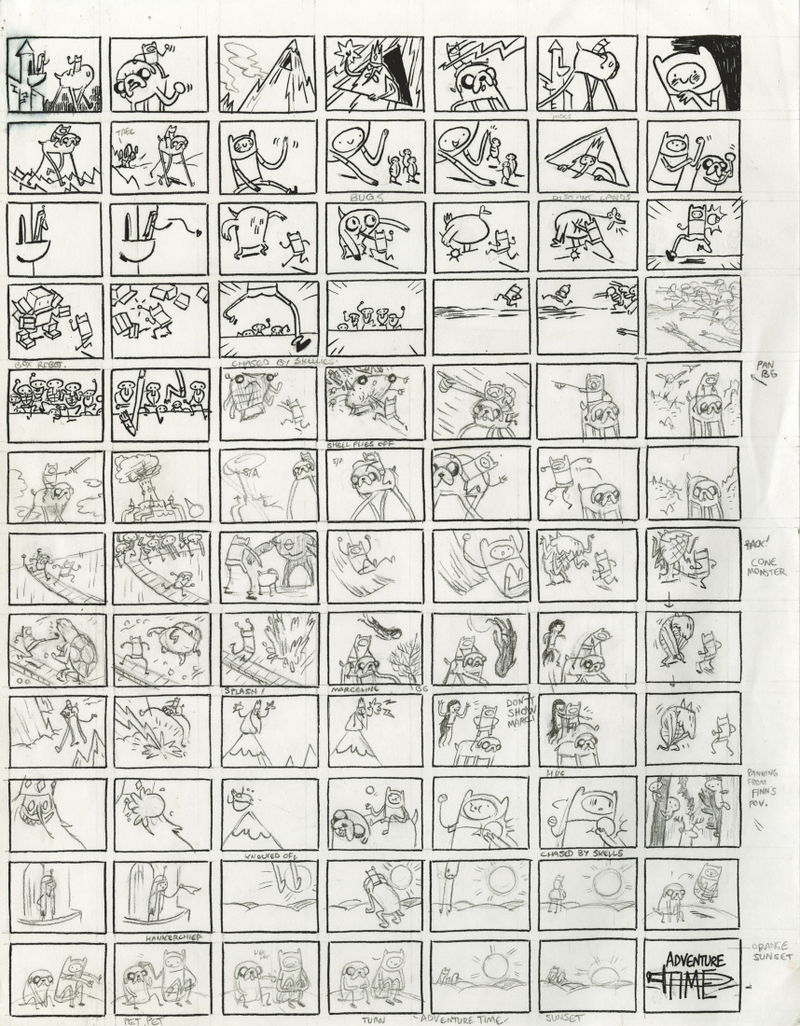 TREE
BUGS
DISTANT LANDS
BOX ROBOT.
CHASED BY SKELLIES.
PAN
BG
SHELL FLIES OFF
S/A
S/A
BACK!
CONE
MONSTER
SPLASH!
MARCELINE
BG
DON'T
SHOW
MARCY
HUG
PANNING
FROM
FINN'S
POV.
KNOCKED OFF
CHASED BY SKELLS
HANKERCHIEF
ORANGE
SUNSET
ADVENTURE
TIME
PET PET
TURN
"ADVENTURE TIME"
SUNSET